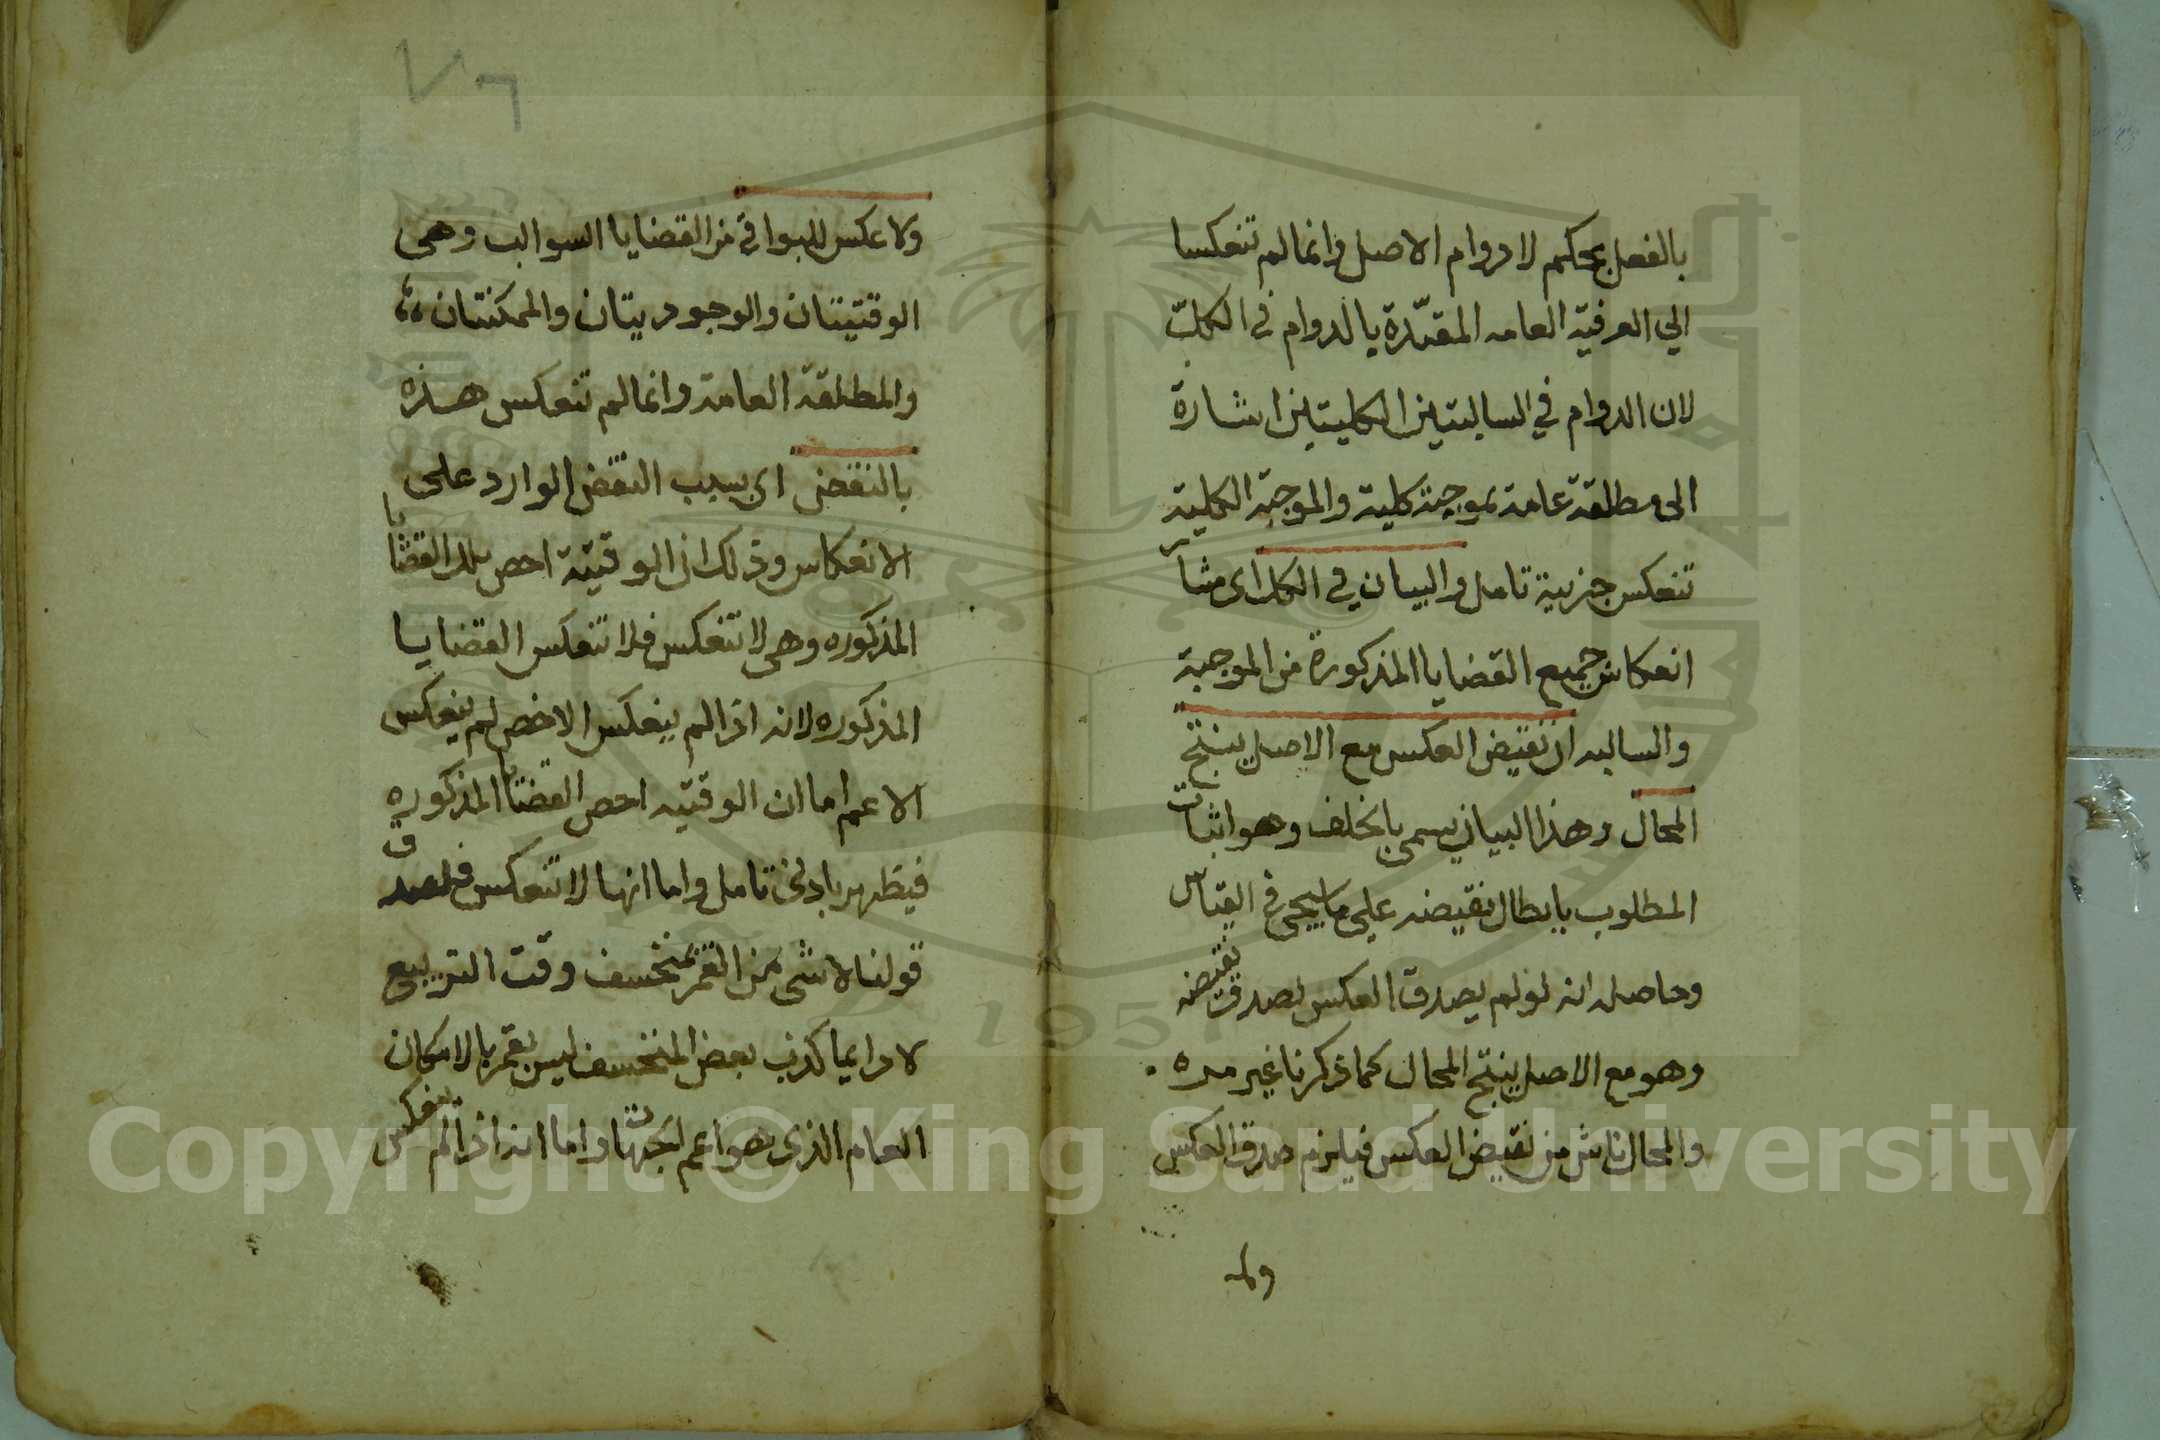 بالفعل بحكم لا دوام الاصل وانما لم تنعكسا
الي العرفية العامه المقيّدة بالدوام في الكلّ
لان الدوام في السالبتين الكليتين اشارة
الى مطلقة عامة موجبة كلية والموجبة الكلية
تنعكس جزيية تامل والبيان في الكل اى
انعكاس جميع القضايا المذكورة من الموجبة
والسالبه ان نقيض العكس مع الاصل ينتج
المحال وهذا البيان يسمى بالخلف وهو اثبات
المطلوب بابطال نقيضه على ما سيجى في القياس
وحاصله انه لو لم يصدق العكس لصدق نقيضه
وهو مع الاصل ينتج المحال كما ذكرنا غير مره
والمحال ناش من نقيض العكس فيلزم صدق العكس
ولا
٧٦
ولا عكس للبواقي من القضايا السوالب وهي
الوقتيتان والوجوديتان والممكنتان
والمطلقة العامة وانما لم تنعكس هذه
بالنقض اي بسبب النقض الوارد على
الانعكاس وذلك ان الوقتية اخص القضايا
المذكوره وهي لا تنعكس فلا تنعكس القضايا
المذكوره لانه اذا لم ينعكس الاخص لم ينعكس
الاعم اما ان الوقتيه اخص القضايا المذكوره
فيظهر بادنى تامل واما انها لا تنعكس فلصدق
قولنا لا شى من القمر بمنخسف وقت التربيع
لا دايما كذب بعض المنخسف ليس بقمر بالامكان
العام الذي هو اعم الجهات واما انه اذا لم ينعكس
Copyright © King Saud University
1957